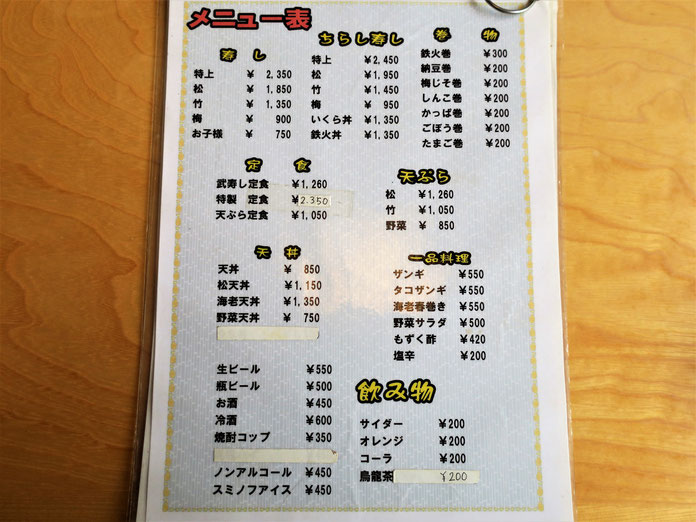 メニュー表
寿し
特上 ￥ 2,350
松 ￥ 1,850
竹 ￥ 1,350
梅 ￥ 900
お子様 ￥ 750
ちらし寿し
特上 ￥2,450
松 ￥1,950
竹 ￥1,450
梅 ￥ 950
いくら丼 ￥1,350
鉄火丼 ￥1,350
巻物
鉄火巻 ￥300
納豆巻 ￥200
梅じそ巻 ￥200
しんこ巻 ￥200
かっぱ巻 ￥200
ごぼう巻 ￥200
たまご巻 ￥200
定食
武寿し定食 ￥1,260
特製 定食 ￥2.350
天ぷら定食 ￥1,050
天ぷら
松 ￥1,260
竹 ￥1,050
野菜 ￥ 850
天丼
天丼 ￥ 850
松天丼 ￥1,150
海老天丼 ￥1,350
野菜天丼 ￥ 750
一品料理
ザンギ ￥550
タコザンギ ￥550
海老春巻き ￥550
野菜サラダ ￥500
もずく酢 ￥420
塩辛 ￥200
生ビール ￥550
瓶ビール ￥500
お酒 ￥450
冷酒 ￥600
焼酎コップ ￥350
ノンアルコール ￥450
スミノフアイス ￥450
飲み物
サイダー ￥200
オレンジ ￥200
コーラ ￥200
烏龍茶 ￥200